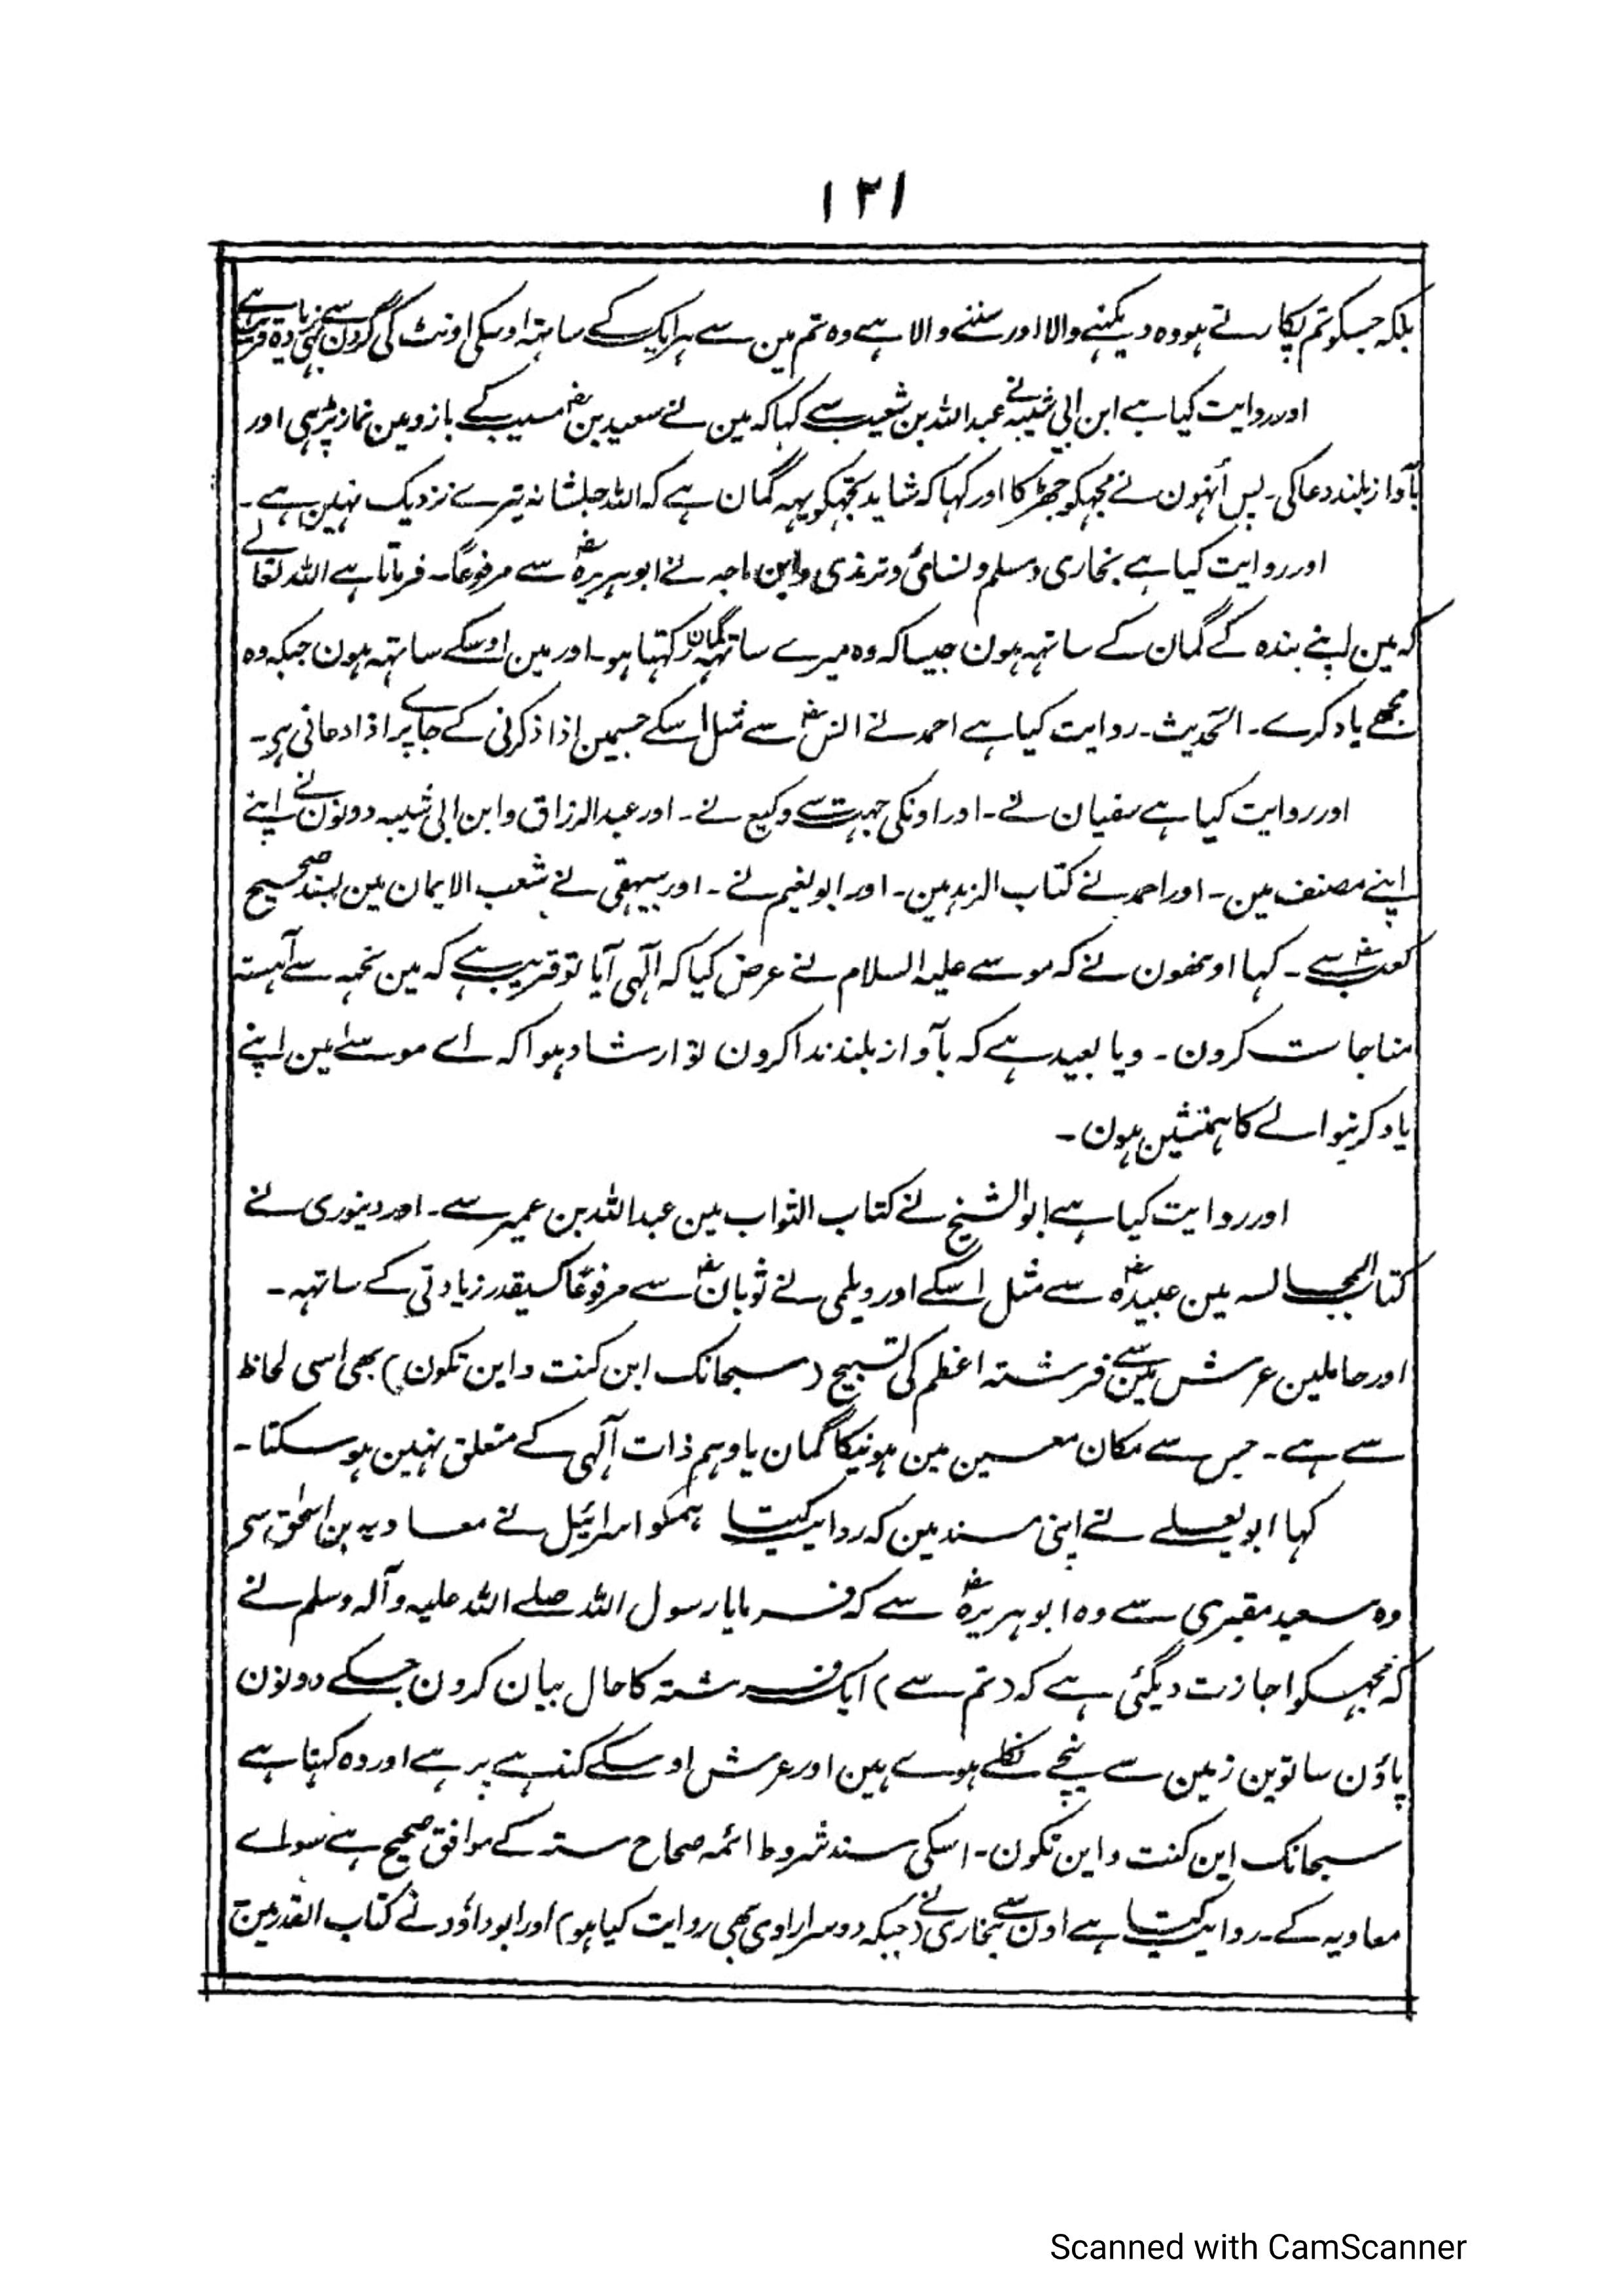 ۱۲۱
بلکہ جسکو تم پکارتے ہو وہ دیکہنے والا اور سننے والا ہے وہ تم مین سے ہرایک کے ساتہہ اوسکی اونٹ کی گردن سے بہی زیادہ قریب ہے
اور روایت کیا ہے ابن ابی شیبہ نے عبداللہ بن شعیب سے کہا کہ مین نے سعید بن مسیب کے بازو مین نماز پڑہی اور
بآواز بلند دعا کی۔ پس اُنہون نے مجہکو جھڑکا اور کہا کہ شاید تجہکو یہہ گمان ہے کہ اللہ جلشانہ تیرے نزدیک نہین ہے۔
اور روایت کیا ہے بخاری و مسلم و نسائی و ترمذی و ابن ماجہ نے ابوہریرہؓ سے مرفوعًا۔ فرماتا ہے اللہ تعالے
کہ مین اپنے بندہ کے گمان کے ساتہہ ہون جیسا کہ وہ میرے ساتہہ گمان رکہتا ہو۔ اور مین اوسکے ساتہہ ہون جبکہ وہ
مجھے یاد کرے۔ الحدیث۔ روایت کیا ہے احمد نے انسؓ سے مثل اسکے جسمین اذا ذکرنی کے جاے پر اذا دعانی ہے۔
اور روایت کیا ہے سفیان نے۔ اور اونکی جہت سے وکیع نے۔ اور عبدالرزاق و ابن ابی شیبہ دونون نے اپنے
اپنے مصنف مین۔ اور احمد نے کتاب الزہد مین۔ اور ابو نعیم نے۔ اور بیہقی نے شعب الایمان مین بسند صحیح
کعبؓ سے۔ کہا اونھون نے کہ موسے علیہ السلام نے عرض کیا کہ الٰہی آیا تو قریب ہے کہ مین تجہہ سے آہستہ
مناجات کرون۔ و یا بعید ہے کہ بآواز بلند ندا کرون تو ارشاد ہوا کہ اے موسے مین اپنے
یاد کرنیوالے کا ہمنشین ہون۔
اور روایت کیا ہے ابو الشیخ نے کتاب الثواب مین عبداللہ بن عمیر سے۔ اور دینوری نے
کتاب المجالسہ مین عبیدہؓ سے مثل اسکے اور ویلمی نے ثوبانؓ سے مرفوعًا کسیقدر زیادتی کے ساتہہ۔
اور حاملین عرش مین سے فرشتہ اعظم کی تسبیح (سبحانک این کنت و این تکون) بھی اسی لحاظ
سے ہے۔ جس سے مکان معین مین ہونیکا گمان یا وہم ذات آلٰہی کے متعلق نہین ہو سکتا۔
کہا ابو یعلے نے اپنی مسند مین کہ روایت کیا ہمکو اسرائیل نے معاویہ بن اسحٰق سے
وہ سعید مقبری سے وہ ابوہریرہؓ سے کہ فرمایا رسول اللہ صلے اللہ علیہ وآلہ وسلم نے
کہ مجہکو اجازت دیگئی ہے کہ (تم سے) ایک فرشتہ کا حال بیان کرون جسکے دونون
پاؤن ساتوین زمین سے نیچے نکلے ہوے ہین اور عرش اوسکے کندہے پر ہے اور وہ کہتا ہے
سبحانک این کنت و این تکون۔ اسکی سند شروط ائمہ صحاح ستہ کے موافق صحیح ہے سواے
معاویہ کے۔ روایت کیا ہے اون سے بخاری نے (جبکہ دوسرا راوی بھی روایت کیا ہو) اور ابوداؤد نے کتاب القدر مین
Scanned with CamScanner